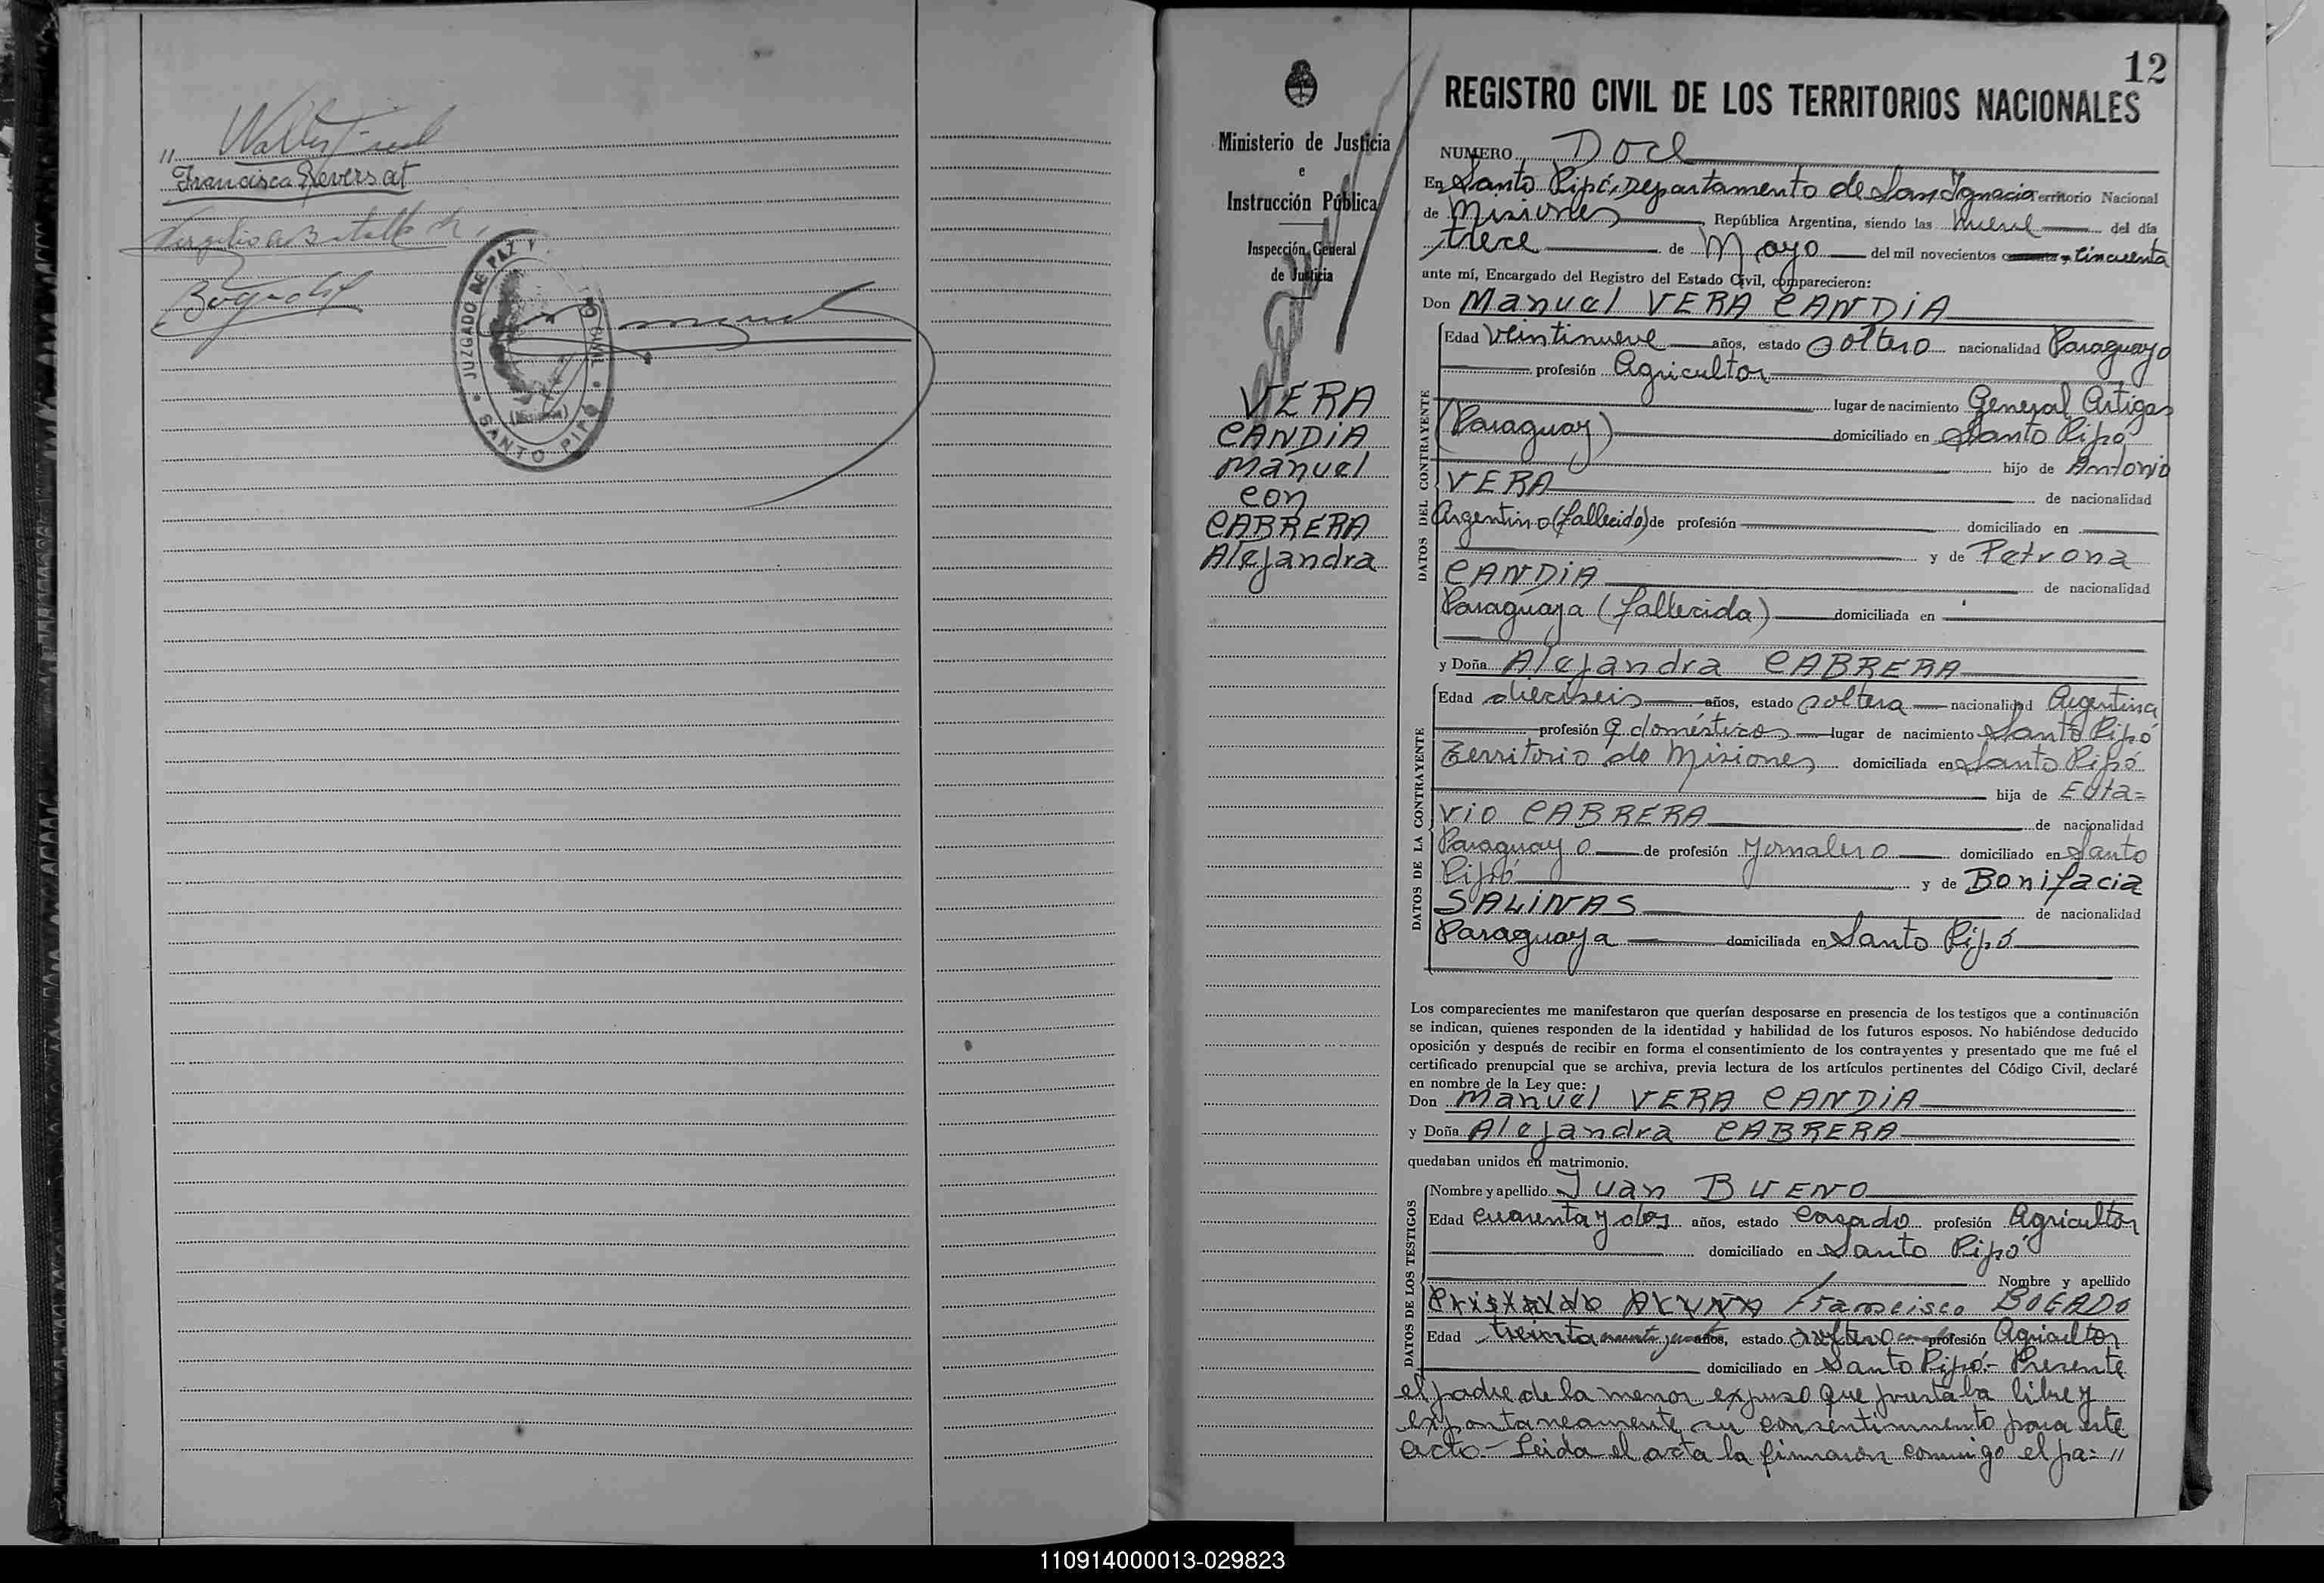 "
Francisca Reversat
JUZGADO DE PAZ Y
CIVIL
SANTO PIPÓ
12
Ministerio de Justicia
e
Instrucción Pública
Inspección General
de Justicia
VERA
CANDIA
Manuel
con
CABRERA
Alejandra
REGISTRO CIVIL DE LOS TERRITORIOS NACIONALES
NUMERO Doce
En Santo Pipó, Departamento de San Ignacio Territorio Nacional
de Misiones, República Argentina, siendo las nueve del día
trece de Mayo del mil novecientos cincuenta
ante mí, Encargado del Registro del Estado Civil, comparecieron:
Don Manuel VERA CANDIA
Edad veintinueve años, estado soltero nacionalidad Paraguayo
profesión Agricultor
lugar de nacimiento General Artigas
(Paraguay) domiciliado en Santo Pipó
hijo de Antonio
VERA de nacionalidad
Argentino (fallecido) de profesión domiciliado en
y de Petrona
CANDIA de nacionalidad
Paraguaya (fallecida) domiciliada en
y Doña Alejandra CABRERA
Edad dieciseis años, estado soltera nacionalidad Argentina
profesión Q. domésticos lugar de nacimiento Santo Pipó
Territorio de Misiones domiciliada en Santo Pipó
hija de Euta=
vio CABRERA de nacionalidad
Paraguayo de profesión Jornalero domiciliado en Santo
Pipó y de Bonifacia
SALINAS de nacionalidad
Paraguaya domiciliada en Santo Pipó
DATOS DEL CONTRAYENTE
DATOS DE LA CONTRAYENTE
Los comparecientes me manifestaron que querían desposarse en presencia de los testigos que a continuación
se indican, quienes responden de la identidad y habilidad de los futuros esposos. No habiéndose deducido
oposición y después de recibir en forma el consentimiento de los contrayentes y presentado que me fué el
certificado prenupcial que se archiva, previa lectura de los artículos pertinentes del Código Civil, declaré
en nombre de la Ley que:
Don Manuel VERA CANDIA
y Doña Alejandra CABRERA
quedaban unidos en matrimonio.
DATOS DE LOS TESTIGOS
Nombre y apellido Juan BUENO
Edad cuarenta y dos años, estado casado profesión Agricultor
domiciliado en Santo Pipó
Nombre y apellido
Francisco BOGADO
Edad treinta años, estado soltero profesión Agricultor
domiciliado en Santo Pipó.- Presente
el padre de la menor expuso que prestaba libre y
expontaneamente su consentimiento para este
acto.- Leida el acta la firmaron conmigo el pa= "
110914000013-029823